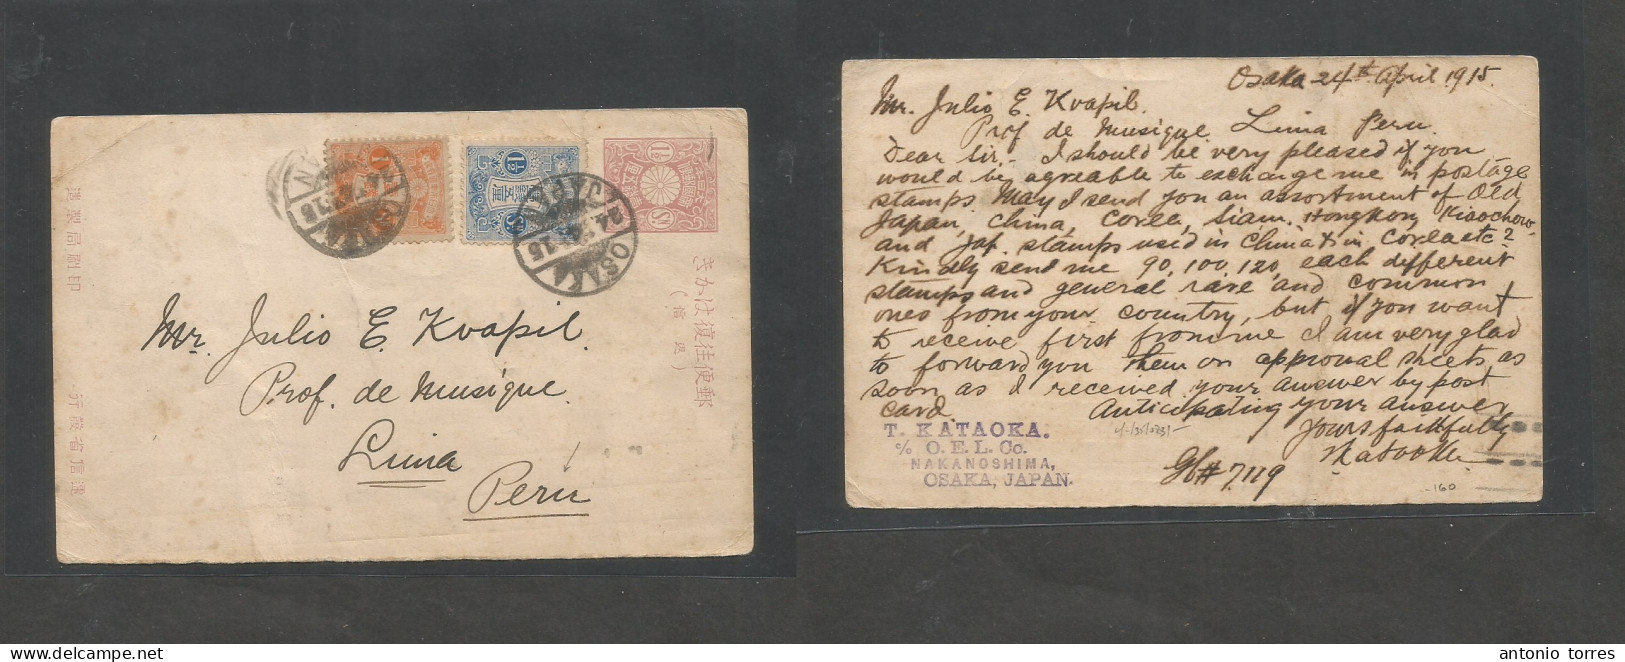 OSAKA
24.4.15
JAPAN
1½
Mr. Julio E. Kvapil.
Prof. de Musique.
Lima
Peru
きか は 復往便郵
(信返)
造製局刷印
行發省信遞
Osaka 24th April 1915.
Mr. Julio E. Kvapil.
Prof de Musique Lima Peru.
Dear Sir.- I should be very pleased if you
would be agreable to exchange me in postage
stamps. May I send you an assortment of Old
Japan, China, Corea, Siam. Hongkong, Kiaochow,
and Jap. stamps used in China & in Corea etc?
Kindly send me 90, 100, 120, each different
stamps and general rare and common
ones from your country, but if you want
to receive first from me I am very glad
to forward you them on approval sheets as
soon as I received your answer by post
card. Anticipating your answer,
Yours faithfully
T. Kataoka
T. KATAOKA.
c/o O. E. L. Co.
NAKANOSHIMA,
OSAKA, JAPAN.
7119
160
antonio torres